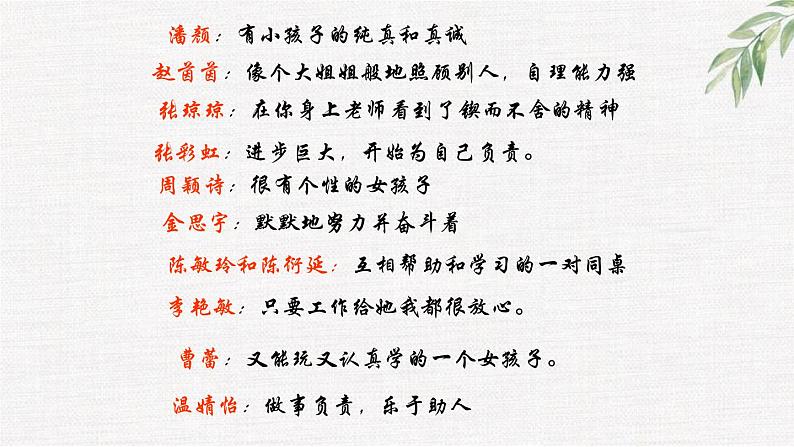 潘颜：有小孩子的纯真和真诚
赵茵茵：像个大姐姐般地照顾别人，自理能力强
张琼琼：在你身上老师看到了锲而不舍的精神
张彩虹：进步巨大，开始为自己负责。
周颖诗：很有个性的女孩子
金思宇：默默地努力并奋斗着
陈敏玲和陈衍延：互相帮助和学习的一对同桌
李艳敏：只要工作给她我都很放心。
曹蕾：又能玩又认真学的一个女孩子。
温婧怡：做事负责，乐于助人